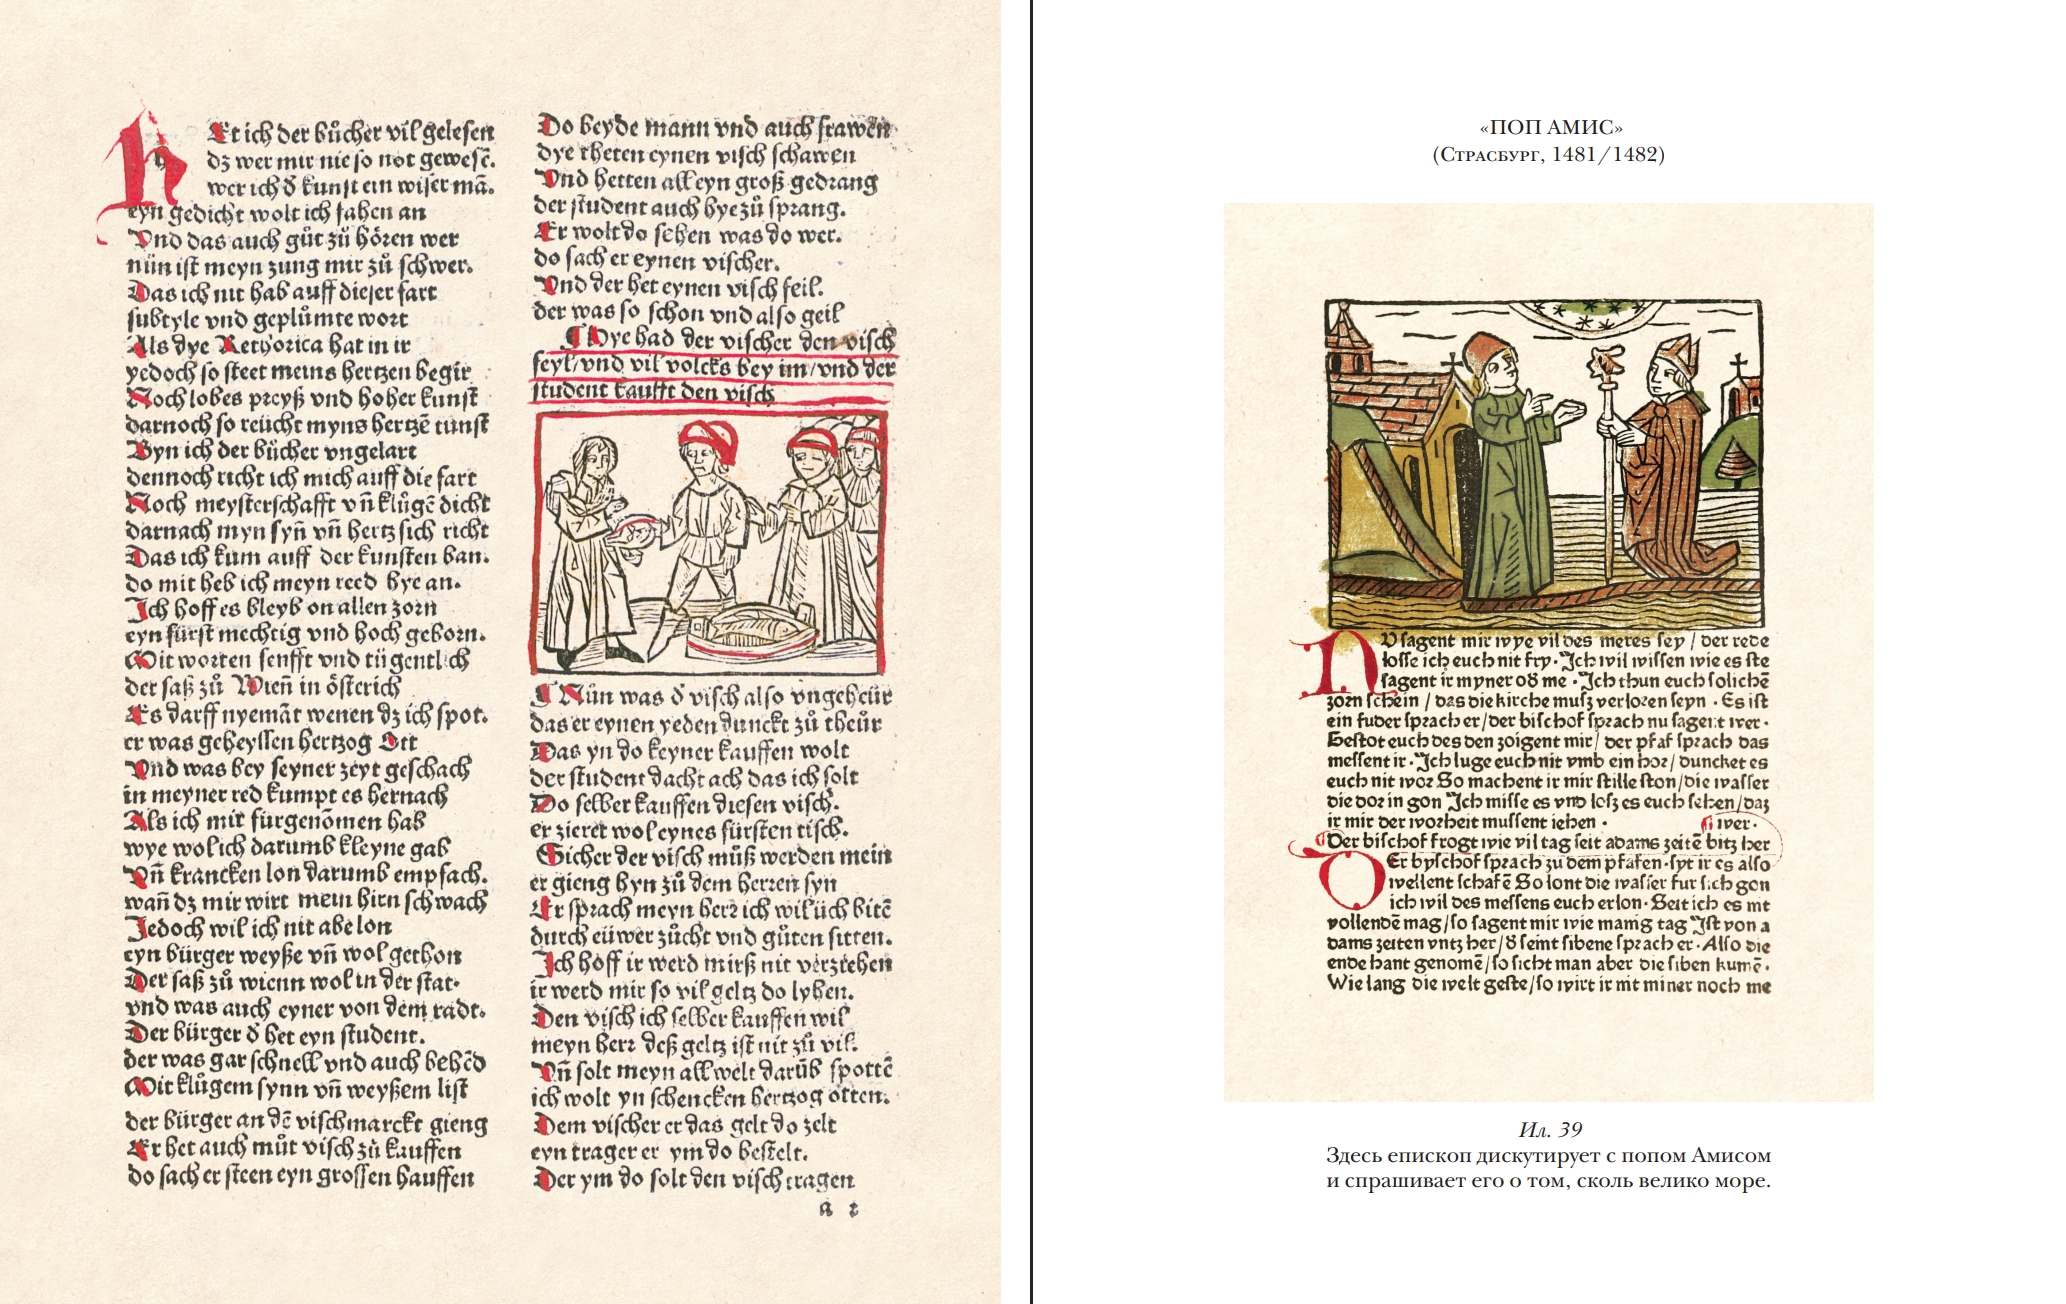 Het ich der bůcher vil gelesen
dz wer mir nie so not gewesē.
wer ich d̕ kunst ein wiser mā.
eyn gedicht wolt ich fahen an
Vnd das auch gůt zů hören wer
nün ist meyn zung mir zů schwer.
Das ich nit hab auff dieser fart
subtyle vnd geplůmte wort
Als dye Rethorica hat in ir
yedoch so steet meins hertzen begir
Noch lobes preyß vnd hoher kunst
darnoch so reücht myns hertzē tunst
Byn ich der bücher vngelart
dennoch richt ich mich auff die fart
Noch meysterschafft vn̄ klůgē dicht
darnach myn syn̄ vn̄ hertz sich richt
Das ich kum auff der kunsten ban.
do mit heb ich meyn reed hye an.
Ich hoff es bleyb on allen zorn
eyn fürst mechtig vnd hoch geborn.
Mit worten senfft vnd tügentlich
der saß zů Wien̄ in österich
Es darff nyemāt wenen dz ich spot.
er was geheyssen hertzog Ott
Vnd was bey seyner zeyt geschach
in meyner red kumpt es hernach
Als ich mir fürgenōmen hab
wye wol ich darumb kleyne gab
Vn̄ krancken lon darumb empfach.
wan̄ dz mir wirt mein hirn schwach
Jedoch wil ich nit abe lon
eyn bürger weyße vn̄ wol gethon
Der saß zů wienn wol in der stat.
vnd was auch eyner von dem radt.
Der bürger d̕ het eyn student.
der was gar schnell vnd auch behēd
Mit klůgem synn vn̄ weyßem list
der bürger an dē vischmarckt gieng
Er het auch můt visch zů kauffen
do sach er steen eyn grossen hauffen
Do beyde mann vnd auch frawen
dye theten eynen visch schawen
Vnd hetten all eyn groß gedrang
der student auch hye zů sprang.
Er wolt do sehen was do wer.
do sach er eynen vischer.
Vnd der het eynen visch feil.
der was so schon vnd also geil
¶ Wye had der vischer den visch
feyl/vnd vil volcks bey im/vnd der
student kaufft den visch
¶ Nün was d̕ visch also vngeheür
das er eynen yeden dunckt zů theür
Das yn do keyner kauffen wolt
der student dacht ach das ich solt
Do selber kauffen diesen visch.
er zieret wol eynes fürsten tisch.
Sicher der visch můß werden mein
er gieng hyn zů dem herren syn
Er sprach meyn herr ich wil üch bitē
durch eüwer zůcht vnd gůten sitten.
Ich hoff ir werd mirß nit verziehen
ir werd mir so vil geltz do lyhen.
Den visch ich selber kauffen wil
meyn herr deß geltz ist nit zů vil.
Vn̄ solt meyn all welt darüb spottē
ich wolt yn schencken hertzog otten.
Dem vischer er das gelt do zelt
eyn trager er ym do bestelt.
Der ym do solt den visch tragen
«ПОП АМИС»
(Страсбург, 1481/1482)
NV sagent mir wye vil des meres sey / der rede
losse ich euch nit fry. Ich wil wissen wie es ste
sagent ir myner od̕ me. Ich thun euch solichē
zorn schein / das die kirche musz verloren seyn. Es ist
ein fuder sprach er/der bischof sprach nu sagent wer.
Gestot euch des den zoigent mir/ der pfaf sprach das
messent ir. Ich luge euch nit vmb ein hor/duncket es
euch nit wor So machent ir mir stille ston/die wasser
die dor in gon Ich misse es vnd losz es euch sehen/daz
ir mir der worheit mussent iehen.
wer.
Der bischof frogt wie vil tag seit adams zeitē bitz her
DEr byschof sprach zu dem pfafen. syt ir es also
wellent schafē So lont die wasser fur sich gon
ich wil des messens euch erlon. Seit ich es nit
vollendē mag/so sagent mir wie manig tag Ist von a
dams zeiten vntz her/d̕ seint sibene sprach er. Also die
ende hant genomē/so sicht man aber die siben kumē.
Wie lang die welt geste/so wirt ir nit miner noch me
Ил. 39
Здесь епископ дискутирует с попом Амисом
и спрашивает его о том, сколь велико море.